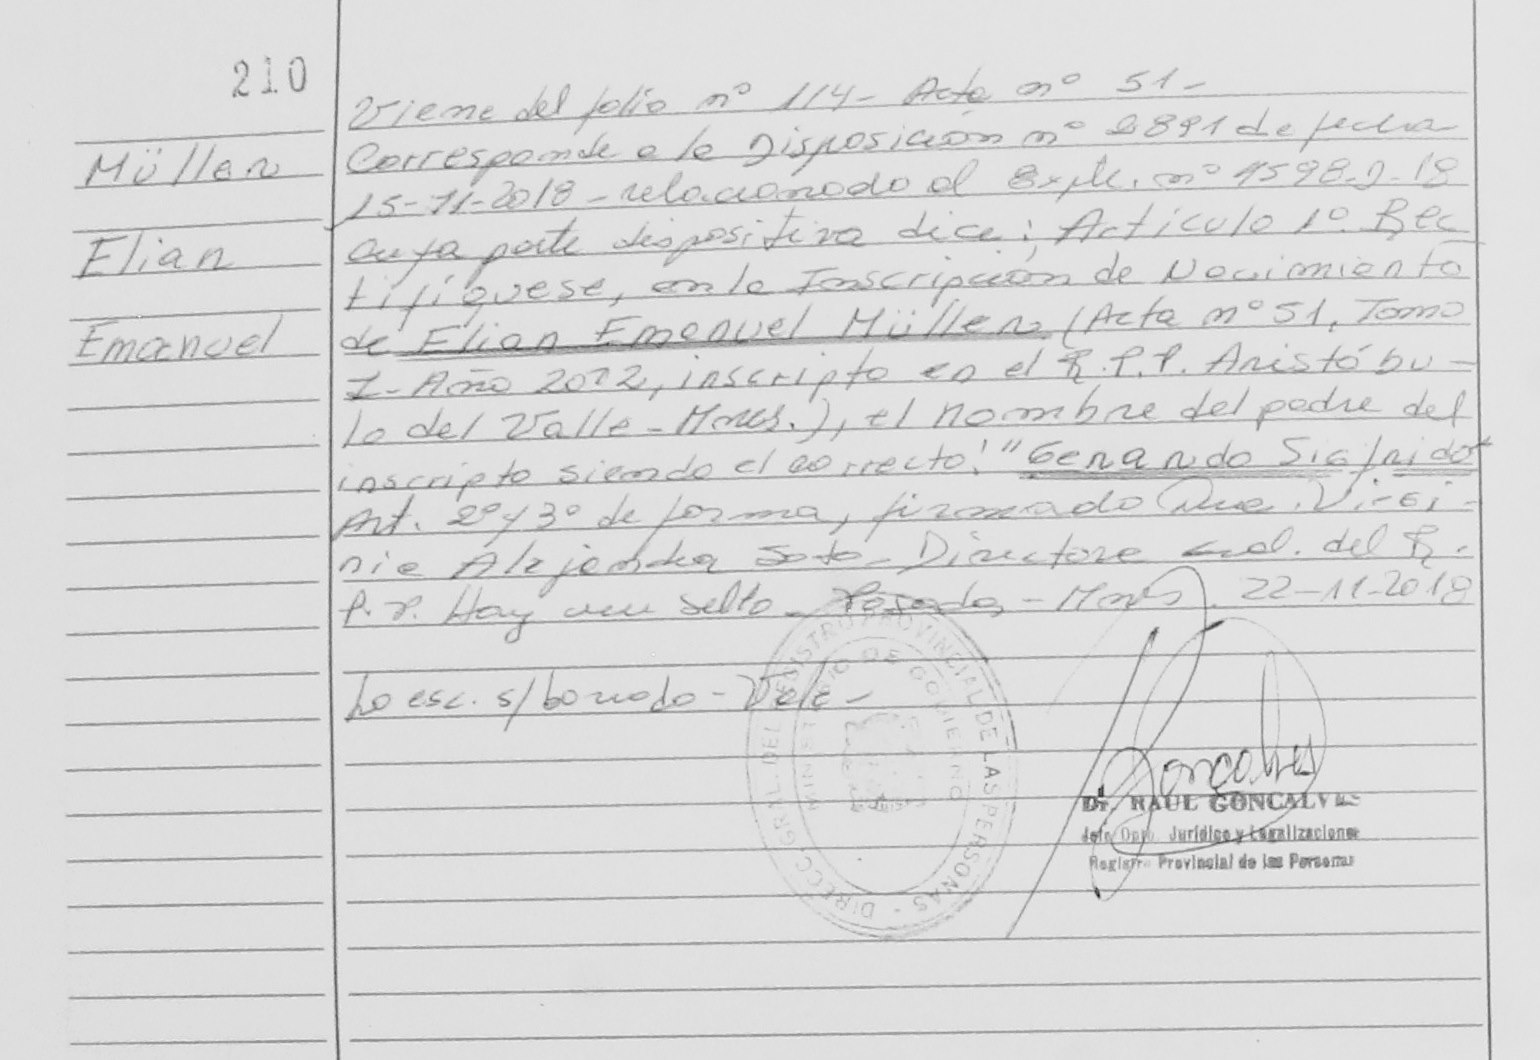 210
Viene del folio nº 114- Acta nº 51-
Müller
Corresponde a la Disposición nº 2891 de fecha
15-11-2018 - relacionado al Expte. nº 1598-J-18
Elian
cuya parte dispositiva dice: Artículo 1º. Rec
tifíquese, en la Inscripción de Nacimiento
Emanuel
de Elian Emanuel Müller (Acta nº 51, Tomo
I- Año 2012, inscripto en el R.P.P. Aristóbu-
lo del Valle - Mnes.), el nombre del padre del
inscripto siendo el correcto: "Genardo Sigfrido"
Art. 2º y 3º de forma, firmado Dra. Virgi-
nia Alejandra Soto - Directora Gral. del R.
P.P. Hay un sello - Posadas, - Mnes. 22-11-2018
Lo esc. s/ borrado - Vale -
DIRECC. GRAL. DEL REGISTRO PROVINCIAL DE LAS PERSONAS -
MINISTERIO DE GOBIERNO
Goncalves
Dr. RAUL GONCALVES
Jefe Dpto. Jurídico y Legalizaciones
Registro Provincial de las Personas